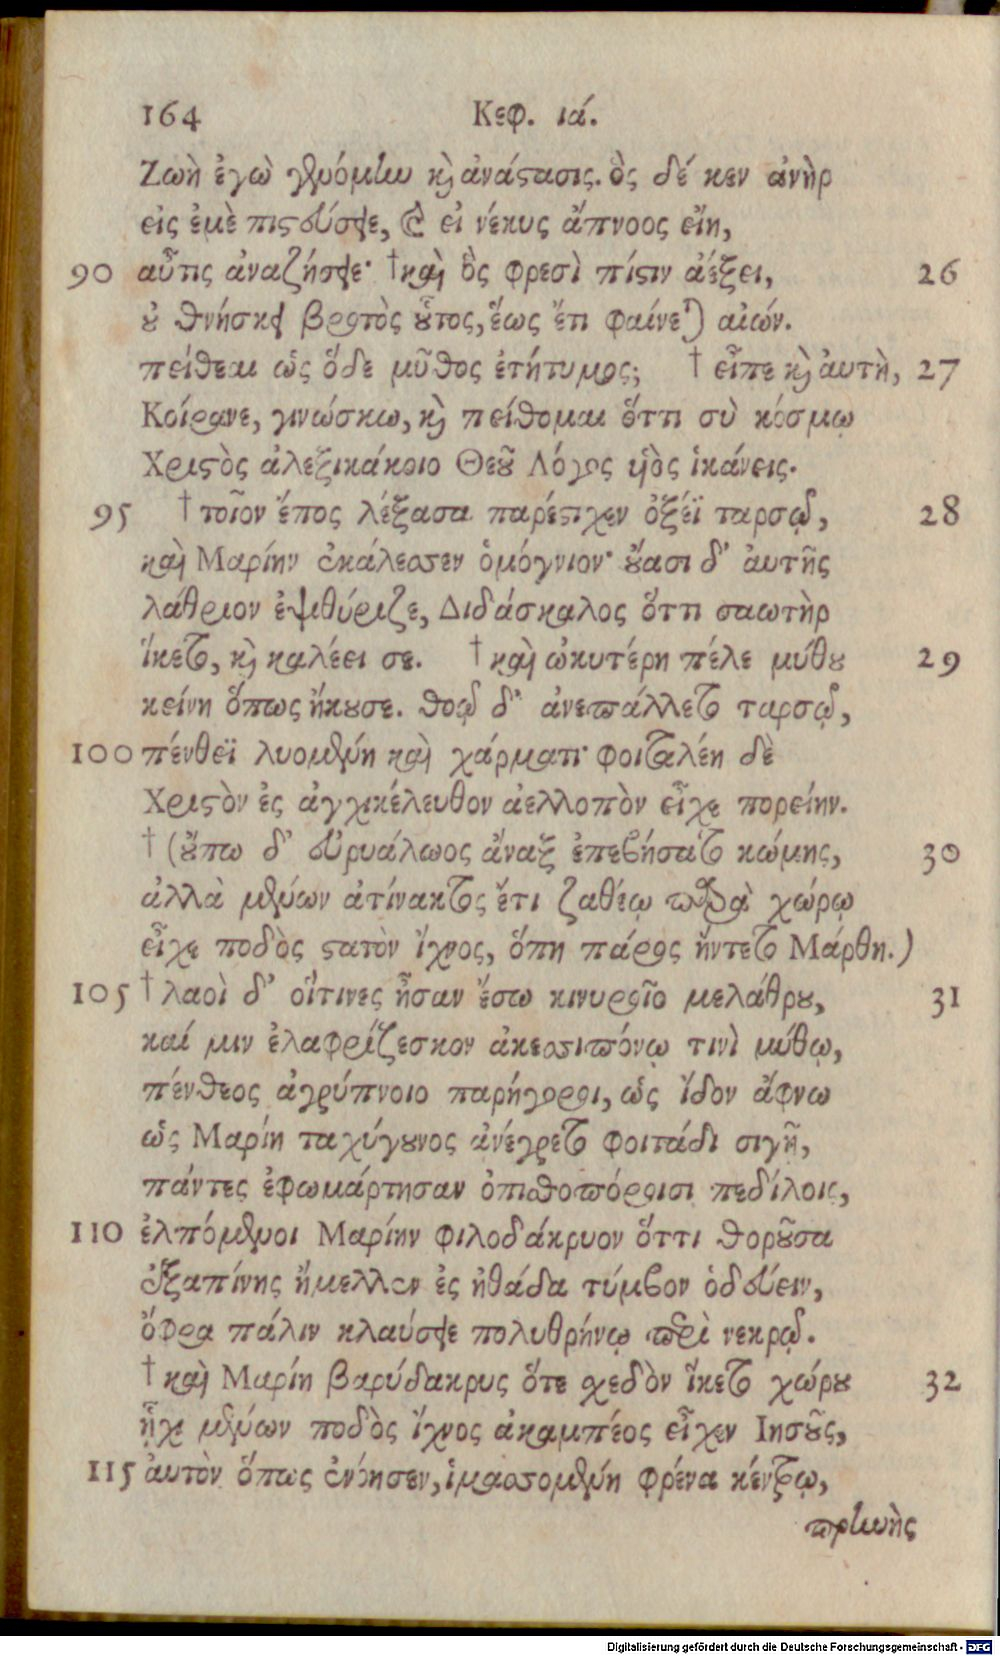 164 Κεφ. ιά.
Ζωὴ ἐγὼ γενόμην καὶ ἀνάστασις. ὃς δέ κεν ἀνὴρ
εἰς ἐμὲ πιστεύσειε, καὶ εἰ νέκυς ἄπνοος εἴη,
90 αὖτις ἀναζήσειε· † καὶ ὃς φρεσὶ πίστιν ἀέξει, 26
οὐ θνήσκει βροτὸς οὗτος, ἕως ἔτι φαίνεται αἰών.
πείθεαι ὡς ὅδε μῦθος ἐτήτυμος; † εἶπε καὶ ἀυτὴ, 27
Κοίρανε, γινώσκω, καὶ πείθομαι ὅττι σὺ κόσμῳ
Χριστὸς ἀλεξικάκοιο Θεοῦ Λόγος υἱὸς ἱκάνεις.
95 † τοῖον ἔπος λέξασα παρέστιχεν ὀξέϊ ταρσῷ, 28
καὶ Μαρίην ἐκάλεσσεν ὁμόγνιον· οὔασι δ' ἀυτῆς
λάθριον ἐψιθύριζε, Διδάσκαλος ὅττι σαωτὴρ
ἵκετο, καὶ καλέει σε. † καὶ ὠκυτέρη πέλε μύθου 29
κείνη ὅπως ἤκουσε. θοῷ δ' ἀνεπάλλετο ταρσῷ,
100 πένθεϊ λυομένη καὶ χάρματι· φοιταλέη δὲ
Χριστὸν ἐς ἀγχικέλευθον ἀελλοπὸν εἶχε πορείην.
† (οὔπω δ' εὐρυάλωος ἄναξ ἐπεβήσατο κώμης, 30
ἀλλὰ μένων ἀτίνακτος ἔτι ζαθέῳ παρὰ χώρῳ
εἶχε ποδὸς στατὸν ἴχνος, ὅπη πάρος ἤντετο Μάρθη.)
105 † λαοὶ δ' οἵτινες ἦσαν ἔσω κινυροῖο μελάθρου, 31
καί μιν ἐλαφρίζεσκον ἀκεσσιπόνῳ τινὶ μύθῳ,
πένθεος ἀγρύπνοιο παρήγοροι, ὡς ἴδον ἄφνω
ὡς Μαρίη ταχύγουνος ἀνέγρετο φοιτάδι σιγῇ,
πάντες ἐφωμάρτησαν ὀπισθοπόροισι πεδίλοις,
110 ἐλπόμενοι Μαρίην φιλοδάκρυον ὅττι θοροῦσα
ἐξαπίνης ἤμελλεν ἐς ἠθάδα τύμβον ὁδεύειν,
ὄφρα πάλιν κλαύσειε πολυθρήνῳ περὶ νεκρῷ.
† καὶ Μαρίη βαρύδακρυς ὅτε σχεδὸν ἵκετο χώρου 32
ᾗχι μένων ποδὸς ἴχνος ἀκαμπέος εἶχεν Ιησοῦς,
115 ἀυτὸν ὅπως ἐνόησεν, ἱμασσομένη φρένα κέντρῳ,
πρηνὴς
Digitalisierung gefördert durch die Deutsche Forschungsgemeinschaft - DFG